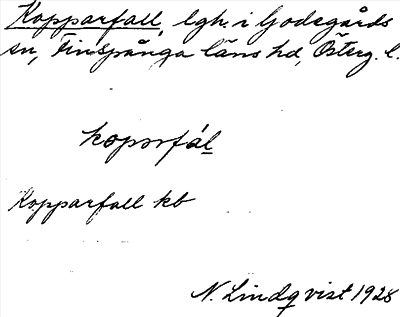 Kopparfall, lgh. i Godegårds
sn, Finspånga läns hd, Österg. l.
koporfál
Kopparfall kb
N. Lindqvist 1928